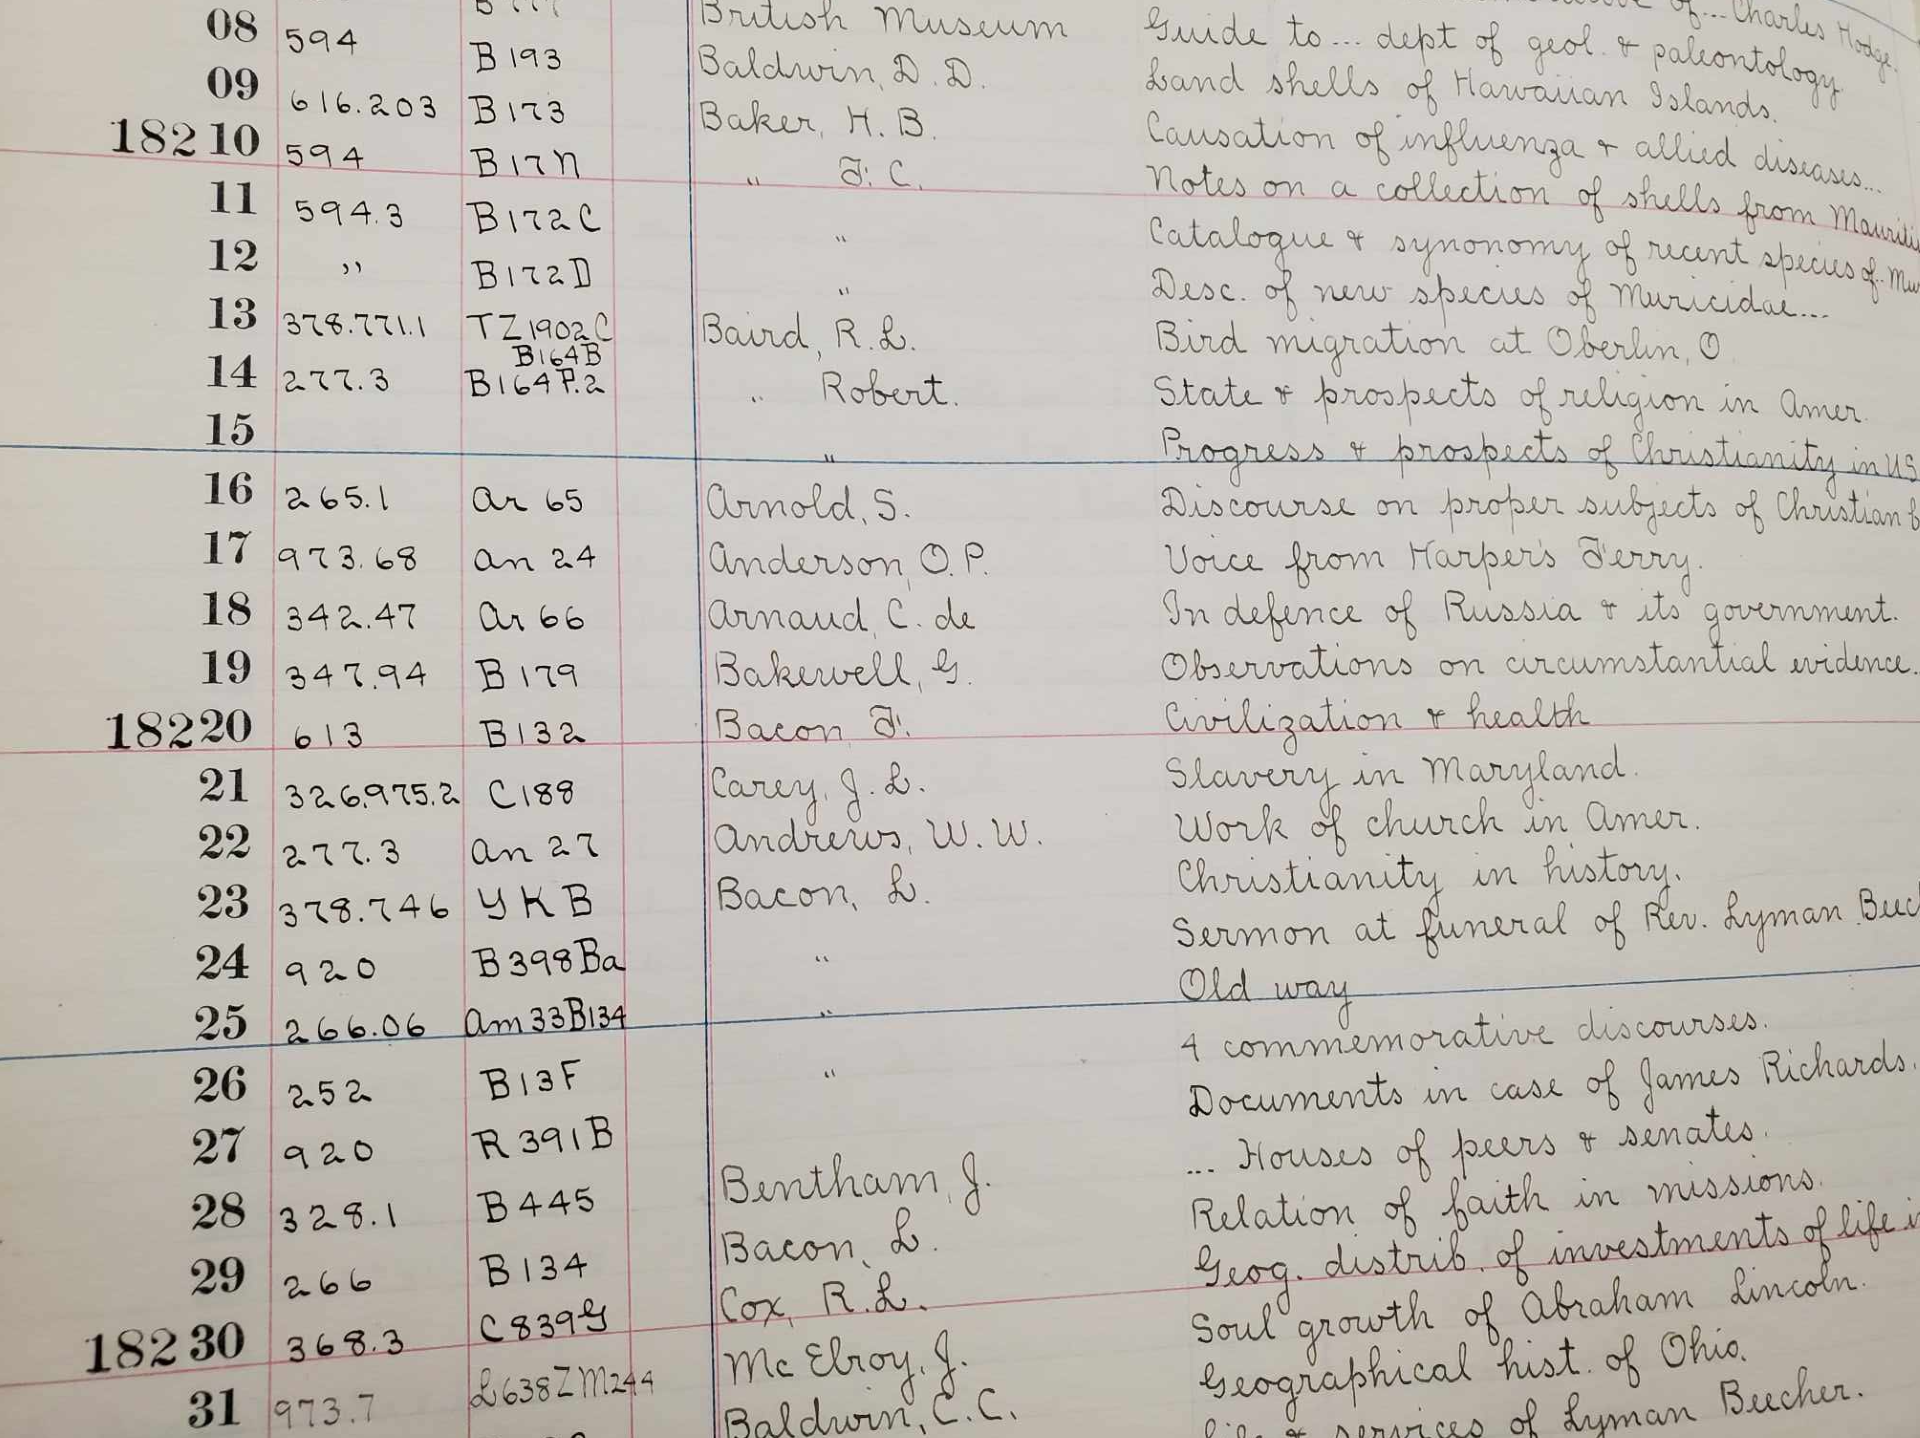 of... Charles Hodge.
British Museum Guide to... dept of geol. & paleontology
08 594 B193 Baldwin, D. D. Land shells of Hawaiian Islands.
09 616.203 B173 Baker, H. B. Causation of influenza & allied diseases...
18210 594 B17N " F. C. Notes on a collection of shells from
11 594.3 B172C " Catalogue & synonomy of recent species of..
12 " B172D " Desc. of new species of Muricidae...
13 378.771.1 TZ1902C Baird, R. L. Bird migration at Oberlin, O
B164B
14 277.3 B164P.2 " Robert. State & prospects of religion in Amer.
15 " Progress & prospects of Christianity in US
16 265.1 Ar 65 Arnold, S. Discourse on proper subjects of Christian
17 973.68 An 24 Anderson, O. P. Voice from Harper's Ferry.
18 342.47 Ar 66 Arnaud, C. de In defence of Russia & its government.
19 347.94 B179 Bakewell, G. Observations on circumstantial evidence.
18220 613 B132 Bacon, F. Civilization & health
21 326.975.2 C188 Carey, J. L. Slavery in Maryland.
22 277.3 An 27 Andrews, W. W. Work of church in Amer.
23 378.746 YKB Bacon, L. Christianity in history.
24 920 B398Ba " Sermon at funeral of Rev. Lyman Beec
25 266.06 Am33B134 " Old way
26 252 B13F " 4 commemorative discourses.
27 920 R391B Documents in case of James Richards.
28 328.1 B445 Bentham, J. ... Houses of peers & senates.
29 266 B134 Bacon, L. Relation of faith in missions.
18230 368.3 C839G Cox, R. L. Geog. distrib. of investments of life
31 973.7 L638ZM244 Mc Elroy, J. Soul growth of Abraham Lincoln.
Baldwin, C. C. Geographical hist. of Ohio.
& services of Lyman Beecher.